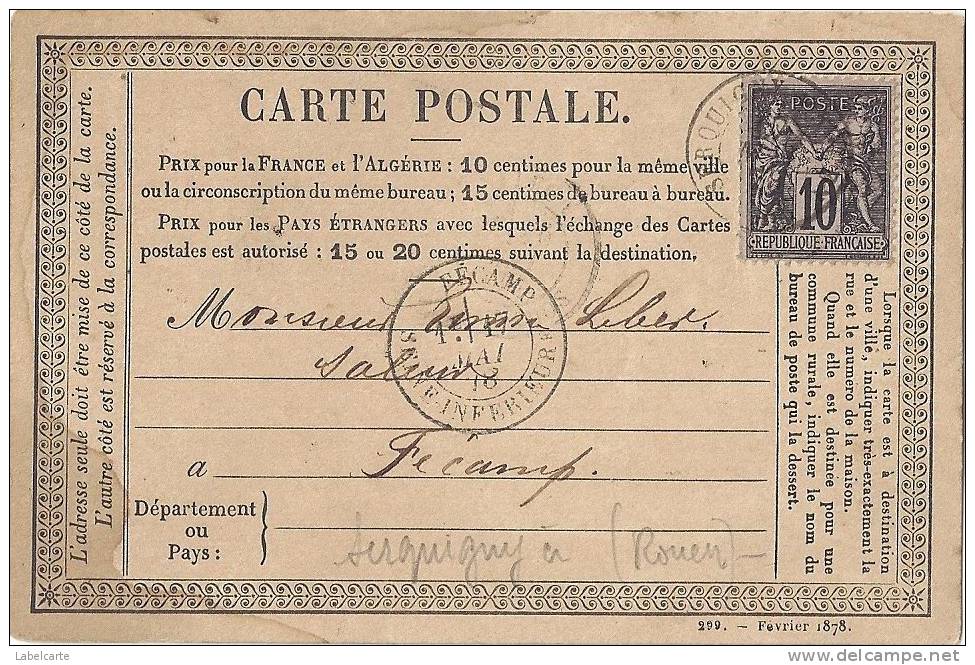 CARTE POSTALE.
PRIX pour la FRANCE et l'ALGÉRIE : 10 centimes pour la même ville
ou la circonscription du même bureau ; 15 centimes de bureau à bureau.
PRIX pour les PAYS ÉTRANGERS avec lesquels l'échange des Cartes
postales est autorisé : 15 ou 20 centimes suivant la destination.
POSTE
10
REPUBLIQUE FRANCAISE
SERQUIGNY
FÉCAMP
MAI
78
SEINE-INFERIEURE
Monsieur Leber.
à Fécamp.
Département
ou
Pays :
Serquigny à (Rouen) -
L'adresse seule doit être mise de ce côté de la carte.
L'autre côté est réservé à la correspondance.
Lorsque la carte est à destination
d'une ville, indiquer très-exactement la
rue et le numero de la maison.
Quand elle est destinée pour une
commune rurale, indiquer le nom du
bureau de poste qui la dessert.
299. — Février 1878.
Labelcarte
www.delcampe.net